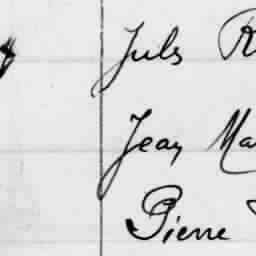 Jules R
Jean Ma
Pierre